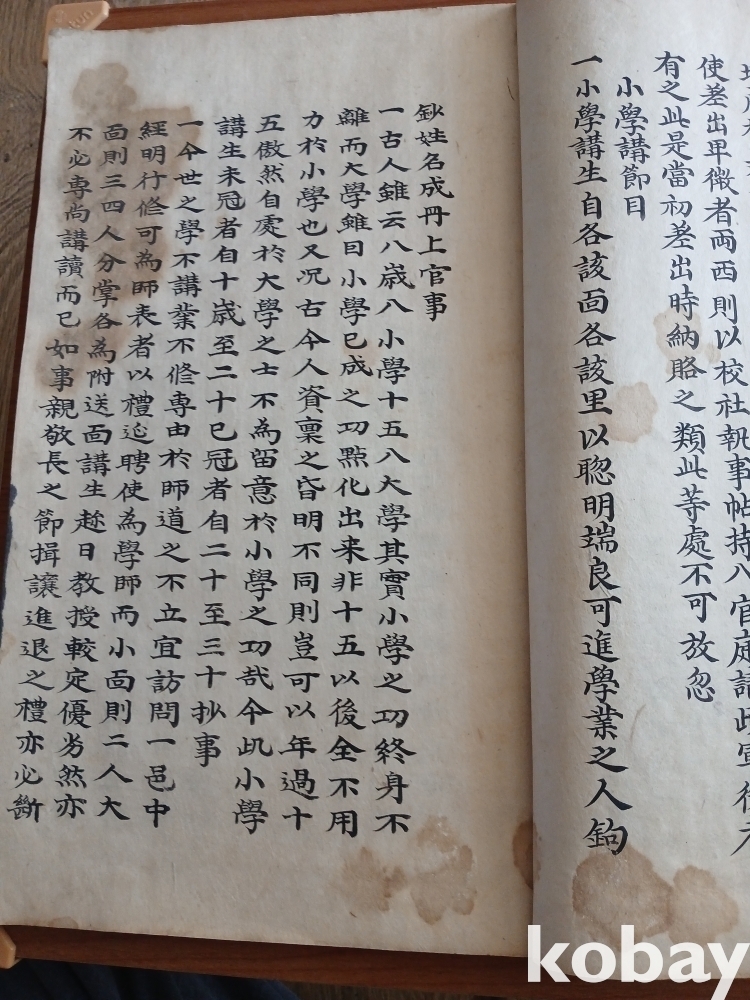 使差出卑微者両西則以校社執事帖持入官庭請
有之此是當初差出時納賂之類此等處不可放忽
小學講節目
一小學講生自各該面各該里以聡明端良可進學業之人鉤
鈔姓名成冊上官事
一古人雖云八歳入小學十五入大學其實小學之功終身不
離而大學雖曰小學已成之功點化出来非十五以後全不用
力於小學也又况古今人資稟之昏明不同則豈可以年過十
五傲然自處於大學之士不為留意於小學之功哉今此小學
講生未冠者自十歳至二十已冠者自二十至三十抄事
一今世之學不講業不修専由於師道之不立宜訪問一邑中
經明行修可為師表者以禮迎聘使為學師而小面則二人大
面則三四人分掌各為附送面講生趂日教授較定優劣然亦
不必専尚講讀而已如事親敬長之節揖讓進退之禮亦必斷
kobay